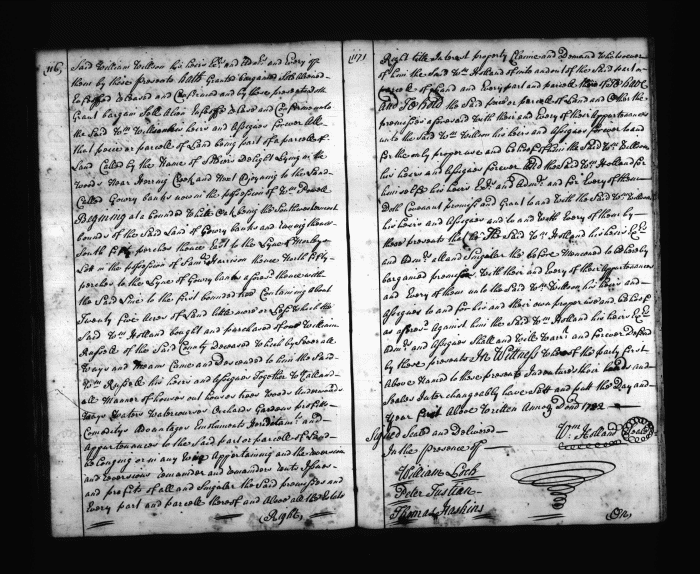 116,
Said William Willson his heirs Exrs and Admrs and Every of
them by these presents hath Granted bargained Sold aliened
Enfeoffed Released and Confirmed and by these presents doth
Grant bargain Sell Alien Enfeoffe Release and Confirm unto
the Said Wm Willson his heirs and assignes forever All
that peice or parcell of Land being part of a parcell of
Land Called by the Name of Delight Lying in the
Woods Near Herring Creek and Next adjoyning to the Land
Called Gowry banks now in the possession of Wm Powell
Begining at a bounded White Oak being the Southwestermost
bounds of the Said Land of Gowry banks and runing thence
South fifty perches thence East to the Line of
Lott in the possession of Saml Harrison thence North fifty
perches to the Line of Gowry banks aforesd thence with
the Said Line to the first bounded tree Containing about
Twenty five Acres of Land be it more or Less which the
Said Wm Holland bought and purchased of one William
Russell of the Said County Deceased which by Severall
Ways and Means Came and Descended to him the Said
Wm Russell his heirs and assignes Together with all and
all Manner of houses out houses trees Woods underwoods
Ways Waters Watercourses Orchards Gardens profitts
Comoditys Advantages Emoluments and
Appurtenances to the Said part or parcell of Land
belonging or in any Wise Appertaining and the reversion
and reversions remainder and remainders rents Issues
and profits of all and Singular the Said premisses and
Every part and parcell thereof and allsoe all the Estate
(Right,
117,
Right title Interest property Claime and Demand Whatsoever
of him the Said Wm Holland of into and out of the Said part or
parcell of Land and Every part and parcell thereof To have
and To hold the Said peice or parcell of Land and Other the
premisses aforesaid With their and Every of their Appurtenances
unto the Said Wm Willson his heirs and Assignes forever to and
for the only proper use and behoof of him the Said Wm Willson
his heirs and Assignes forever And the Said Wm Holland for
himselfe his heirs Exrs and Admrs and for Every of them
Doth Covenant promise and Grant to and With the Said Wm Willson
his heirs and Assignes and to and With Every of them by
these presents that he the Said Wm Holland his heirs Exrs
and Admrs all and Singular the before Mencioned to be hereby
bargained premisses With their and Every of their Appurtenances
and Every of them unto the Said Wm Willson his heirs and
Assignes to and for his and their own proper use and behoof
as aforesd Against him the Said Wm Holland his heirs Exrs
Admrs and Assignes Shall and Will Warrt and forever Defend
by these presents In Wittness Whereof the party first
Above Named to these presents Indentures their hands and
Seales Interchangeably have Sett and put the Day and
Year first Above Written Annoq Domi 1722
Signed Sealed and Delivered
In the presence of
Wm Holland
Seale
William Lock
Peter Tustian
Thomas Haskins
On,